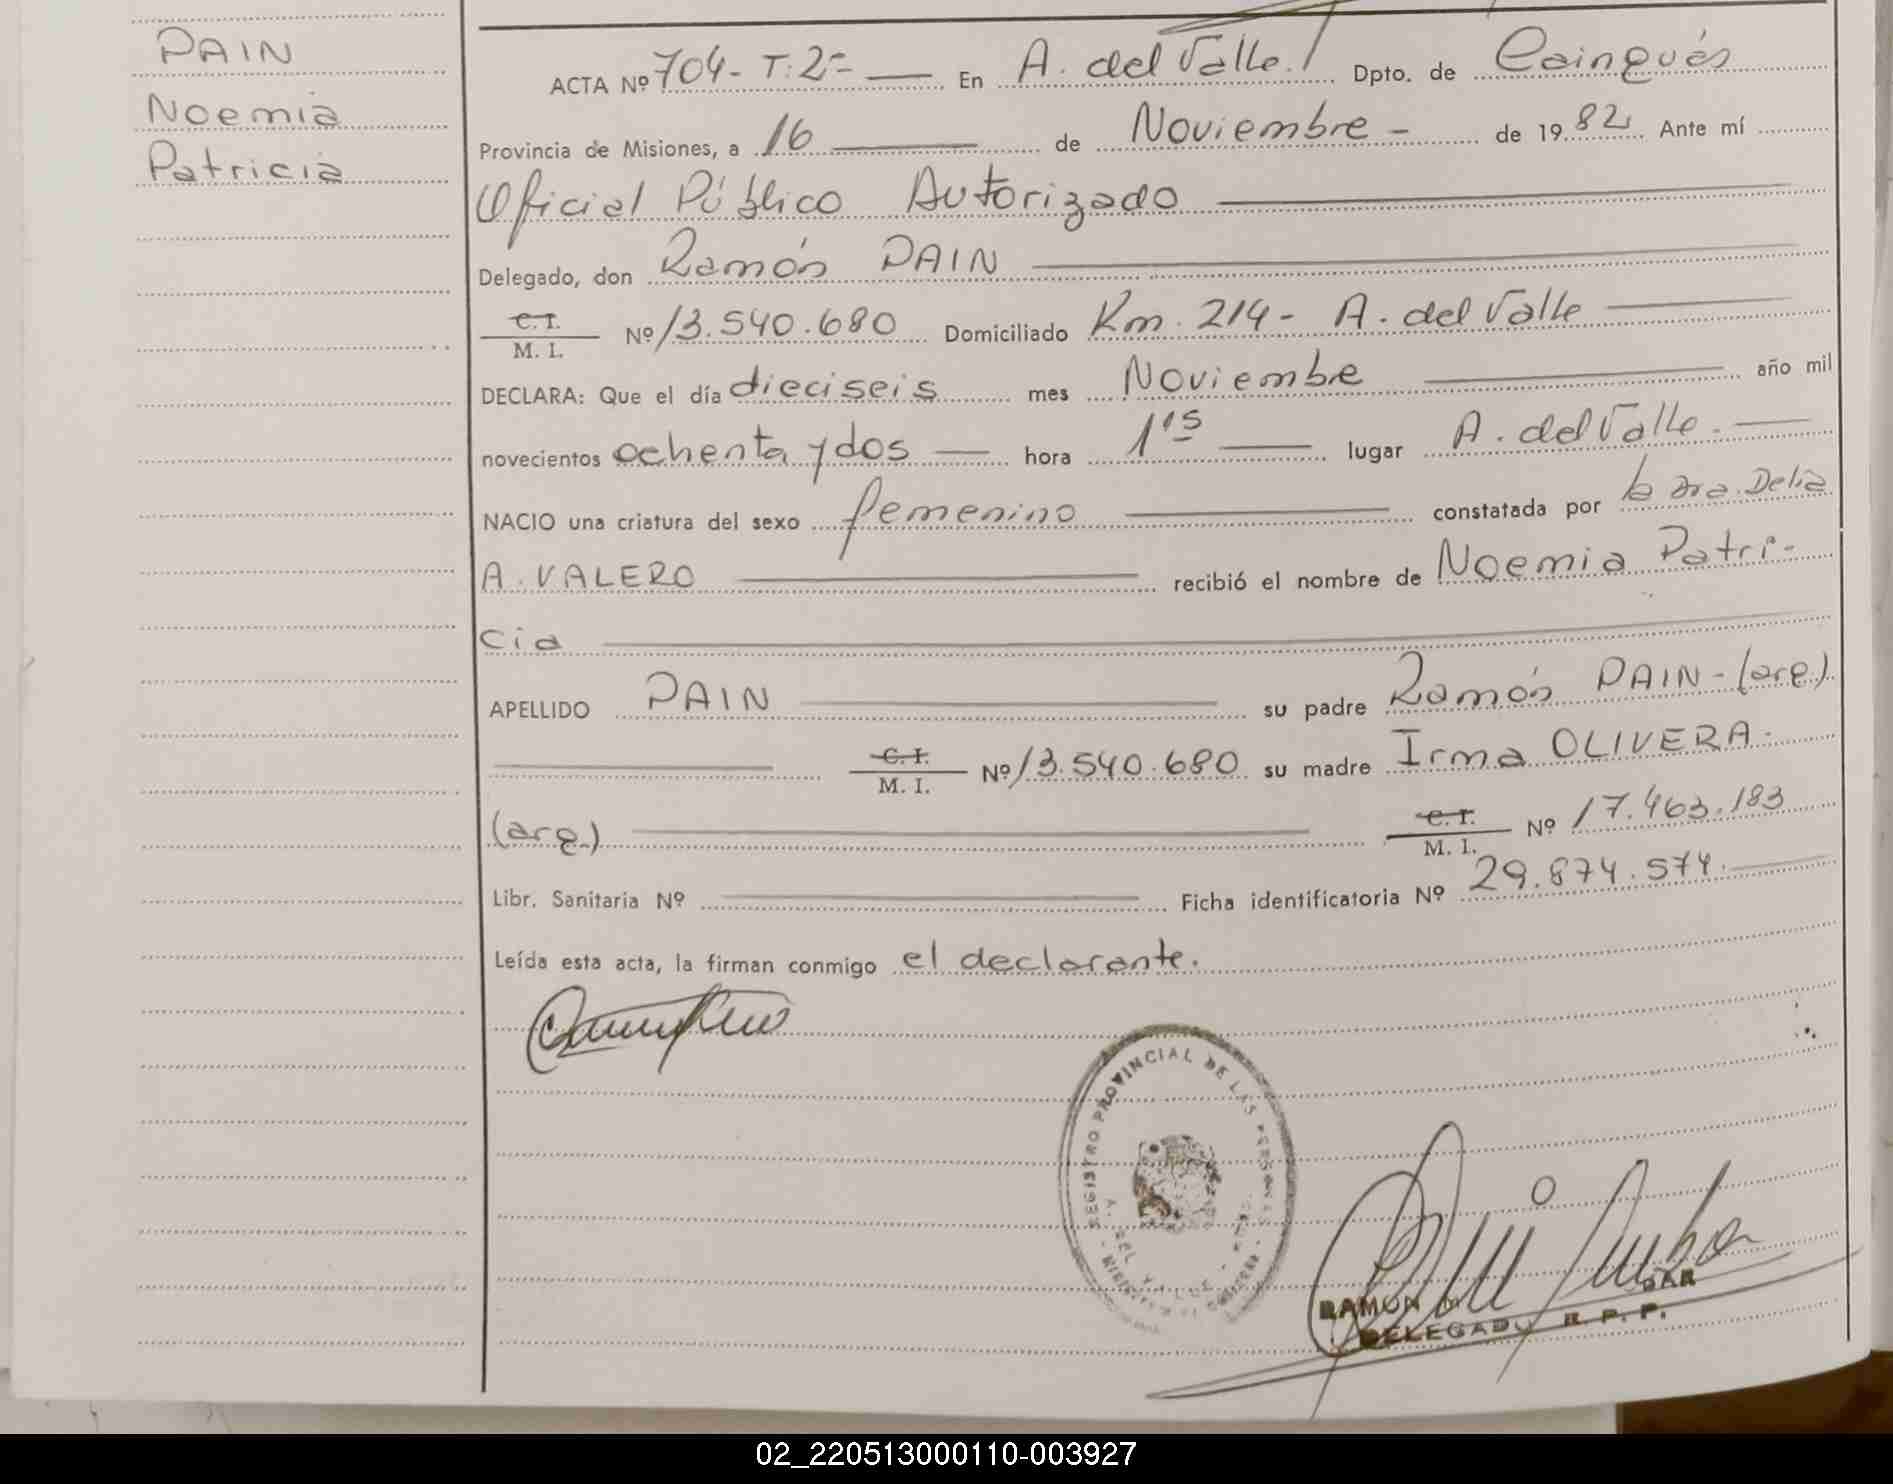 PAIN
Noemia
Patricia
ACTA Nº 704- T:2º- En A. del Valle Dpto. de Cainguás
Provincia de Misiones, a 16 de Noviembre - de 1982 Ante mí
Oficial Público Autorizado
Delegado, don Ramón PAIN
C.I.
M. I. Nº 13.540.680 Domiciliado Km. 214- A. del Valle
DECLARA: Que el día dieciseis mes Noviembre año mil
novecientos ochenta y dos hora 1'15 lugar A. del Valle.
NACIO una criatura del sexo femenino constatada por la Dra. Delia
A. VALERO recibió el nombre de Noemia Patri-
cia
APELLIDO PAIN su padre Ramón PAIN-(arg)
C.I.
M. I. Nº 13.540.680 su madre Irma OLIVERA-
(arg) C.I.
M. I. Nº 17.463.183
Libr. Sanitaria Nº Ficha identificatoria Nº 29.874.574.
Leída esta acta, la firman conmigo el declarante.
REGISTRO PROVINCIAL DE LAS PERSONAS
RAMON
DELEGADO R. P. P.
02_220513000110-003927